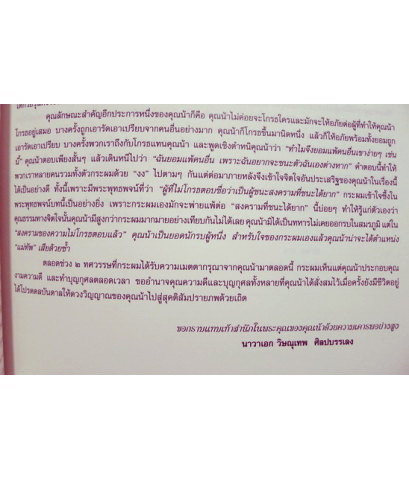 คุณลักษณะสำคัญอีกประการหนึ่งของคุณน้าก็คือ คุณน้าไม่ค่อยจะโกรธใครและมักจะให้อภัยต่อผู้ที่ทำให้คุณน้า
โกรธอยู่เสมอ บางครั้งถูกเอารัดเอาเปรียบจากคนอื่นอย่างมาก คุณน้าก็โกรธขึ้นมานิดหนึ่ง แล้วก็ให้อภัยพร้อมทั้งยอมถูก
เอารัดเอาเปรียบต่อไป บางครั้งพวกเราถึงกับโกรธแทนคุณน้า และพูดเชิงตำหนิคุณน้าว่า "ทำไมจึงยอมแพ้คนอื่นเขาง่ายๆ เช่น
นี้" คุณน้าตอบเพียงสั้นๆ แล้วเดินหนีไปว่า "ฉันยอมแพ้คนอื่น เพราะฉันอยากจะชนะตัวฉันเองต่างหาก" คำตอบนี้ทำให้
พวกเราหลายคนรวมทั้งตัวกระผมด้วย "งง" ไปตามๆ กันแต่ต่อมาภายหลังจึงเข้าใจจิตใจอันประเสริฐของคุณน้าในเรื่องนี้
ได้เป็นอย่างดี ทั้งนี้เพราะมีพระพุทธพจน์ที่ว่า "ผู้ที่ไม่โกรธตอบชื่อว่าเป็นผู้ชนะสงครามที่ชนะได้ยาก" กระผมเข้าใจซึ้งใน
พระพุทธพจน์บทนี้เป็นอย่างยิ่ง เพราะกระผมเองมักจะพ่ายแพ้ต่อ "สงครามที่ชนะได้ยาก" นี้บ่อยๆ ทำให้รู้แก่ตัวเองว่า
คุณธรรมทางจิตใจนั้นคุณน้ามีสูงกว่ากระผมมากมายอย่างเทียบกันไม่ได้เลย คุณน้ามิได้เป็นทหารไม่เคยออกรบในสมรภูมิ แต่ใน
"สงครามของความไม่โกรธตอบแล้ว" คุณน้าเป็นยอดนักรบผู้หนึ่ง สำหรับใจของกระผมเองแล้วคุณน้าน่าจะได้ตำแหน่ง
"แม่ทัพ" เสียด้วยซ้ำ
ตลอดช่วง ๒ ทศวรรษที่กระผมได้รับความเมตตากรุณาจากคุณน้ามาตลอดนี้ กระผมเห็นแต่คุณน้าประกอบคุณ
งามความดี และทำบุญกุศลตลอดเวลา ขออำนาจคุณความดีและบุญกุศลทั้งหลายที่คุณน้าได้สั่งสมไว้เมื่อครั้งยังมีชีวิตอยู่
ได้โปรดดลบันดาลให้ดวงวิญญาณของคุณน้าไปสู่สุคติสัมปรายภพด้วยเถิด
ขอกราบแทบเท้ารำลึกในพระคุณของคุณน้าด้วยความเคารพอย่างสูง
นาวาเอก วิษณุเทพ ศิลปบรรเลง